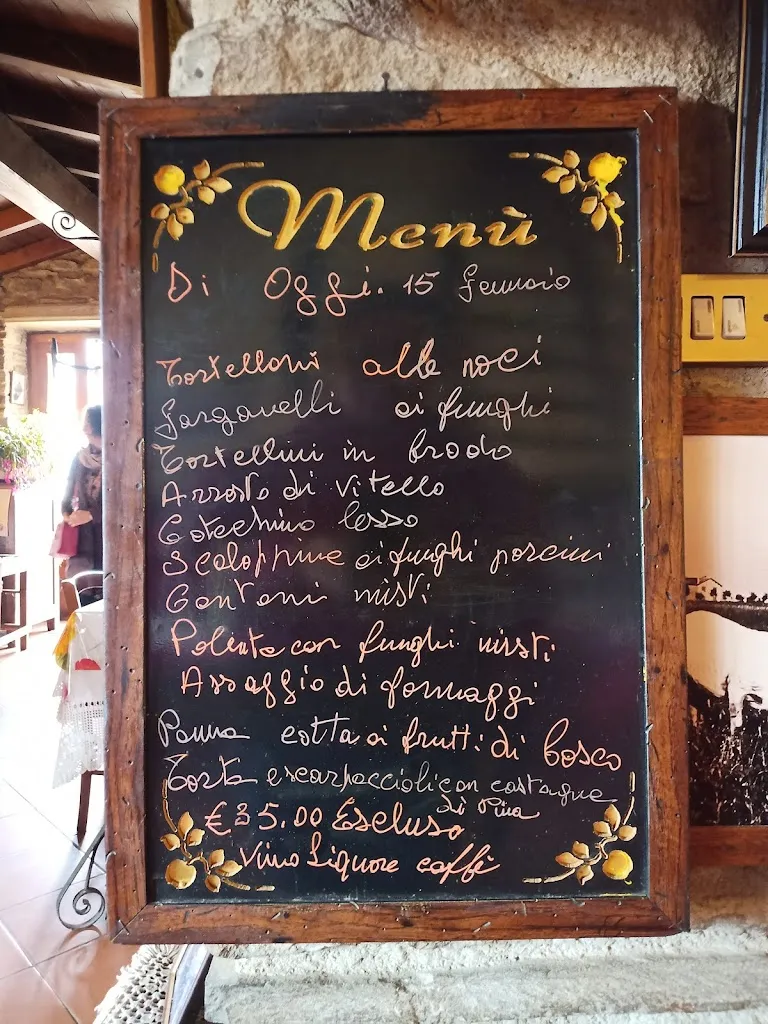 Menù
Di Oggi. 15 Gennaio
Tortelloni alle noci
Garganelli ai funghi
Tortellini in brodo
Arrosto di vitello
Cotechino lesso
Scaloppine ai funghi porcini
Contorni misti
Polenta con funghi misti
Assaggio di formaggi
Panna cotta ai frutti di bosco
Torta e scarpaccioli con castagne
di Pina
€35.00 Escluso
Vino Liquore caffè